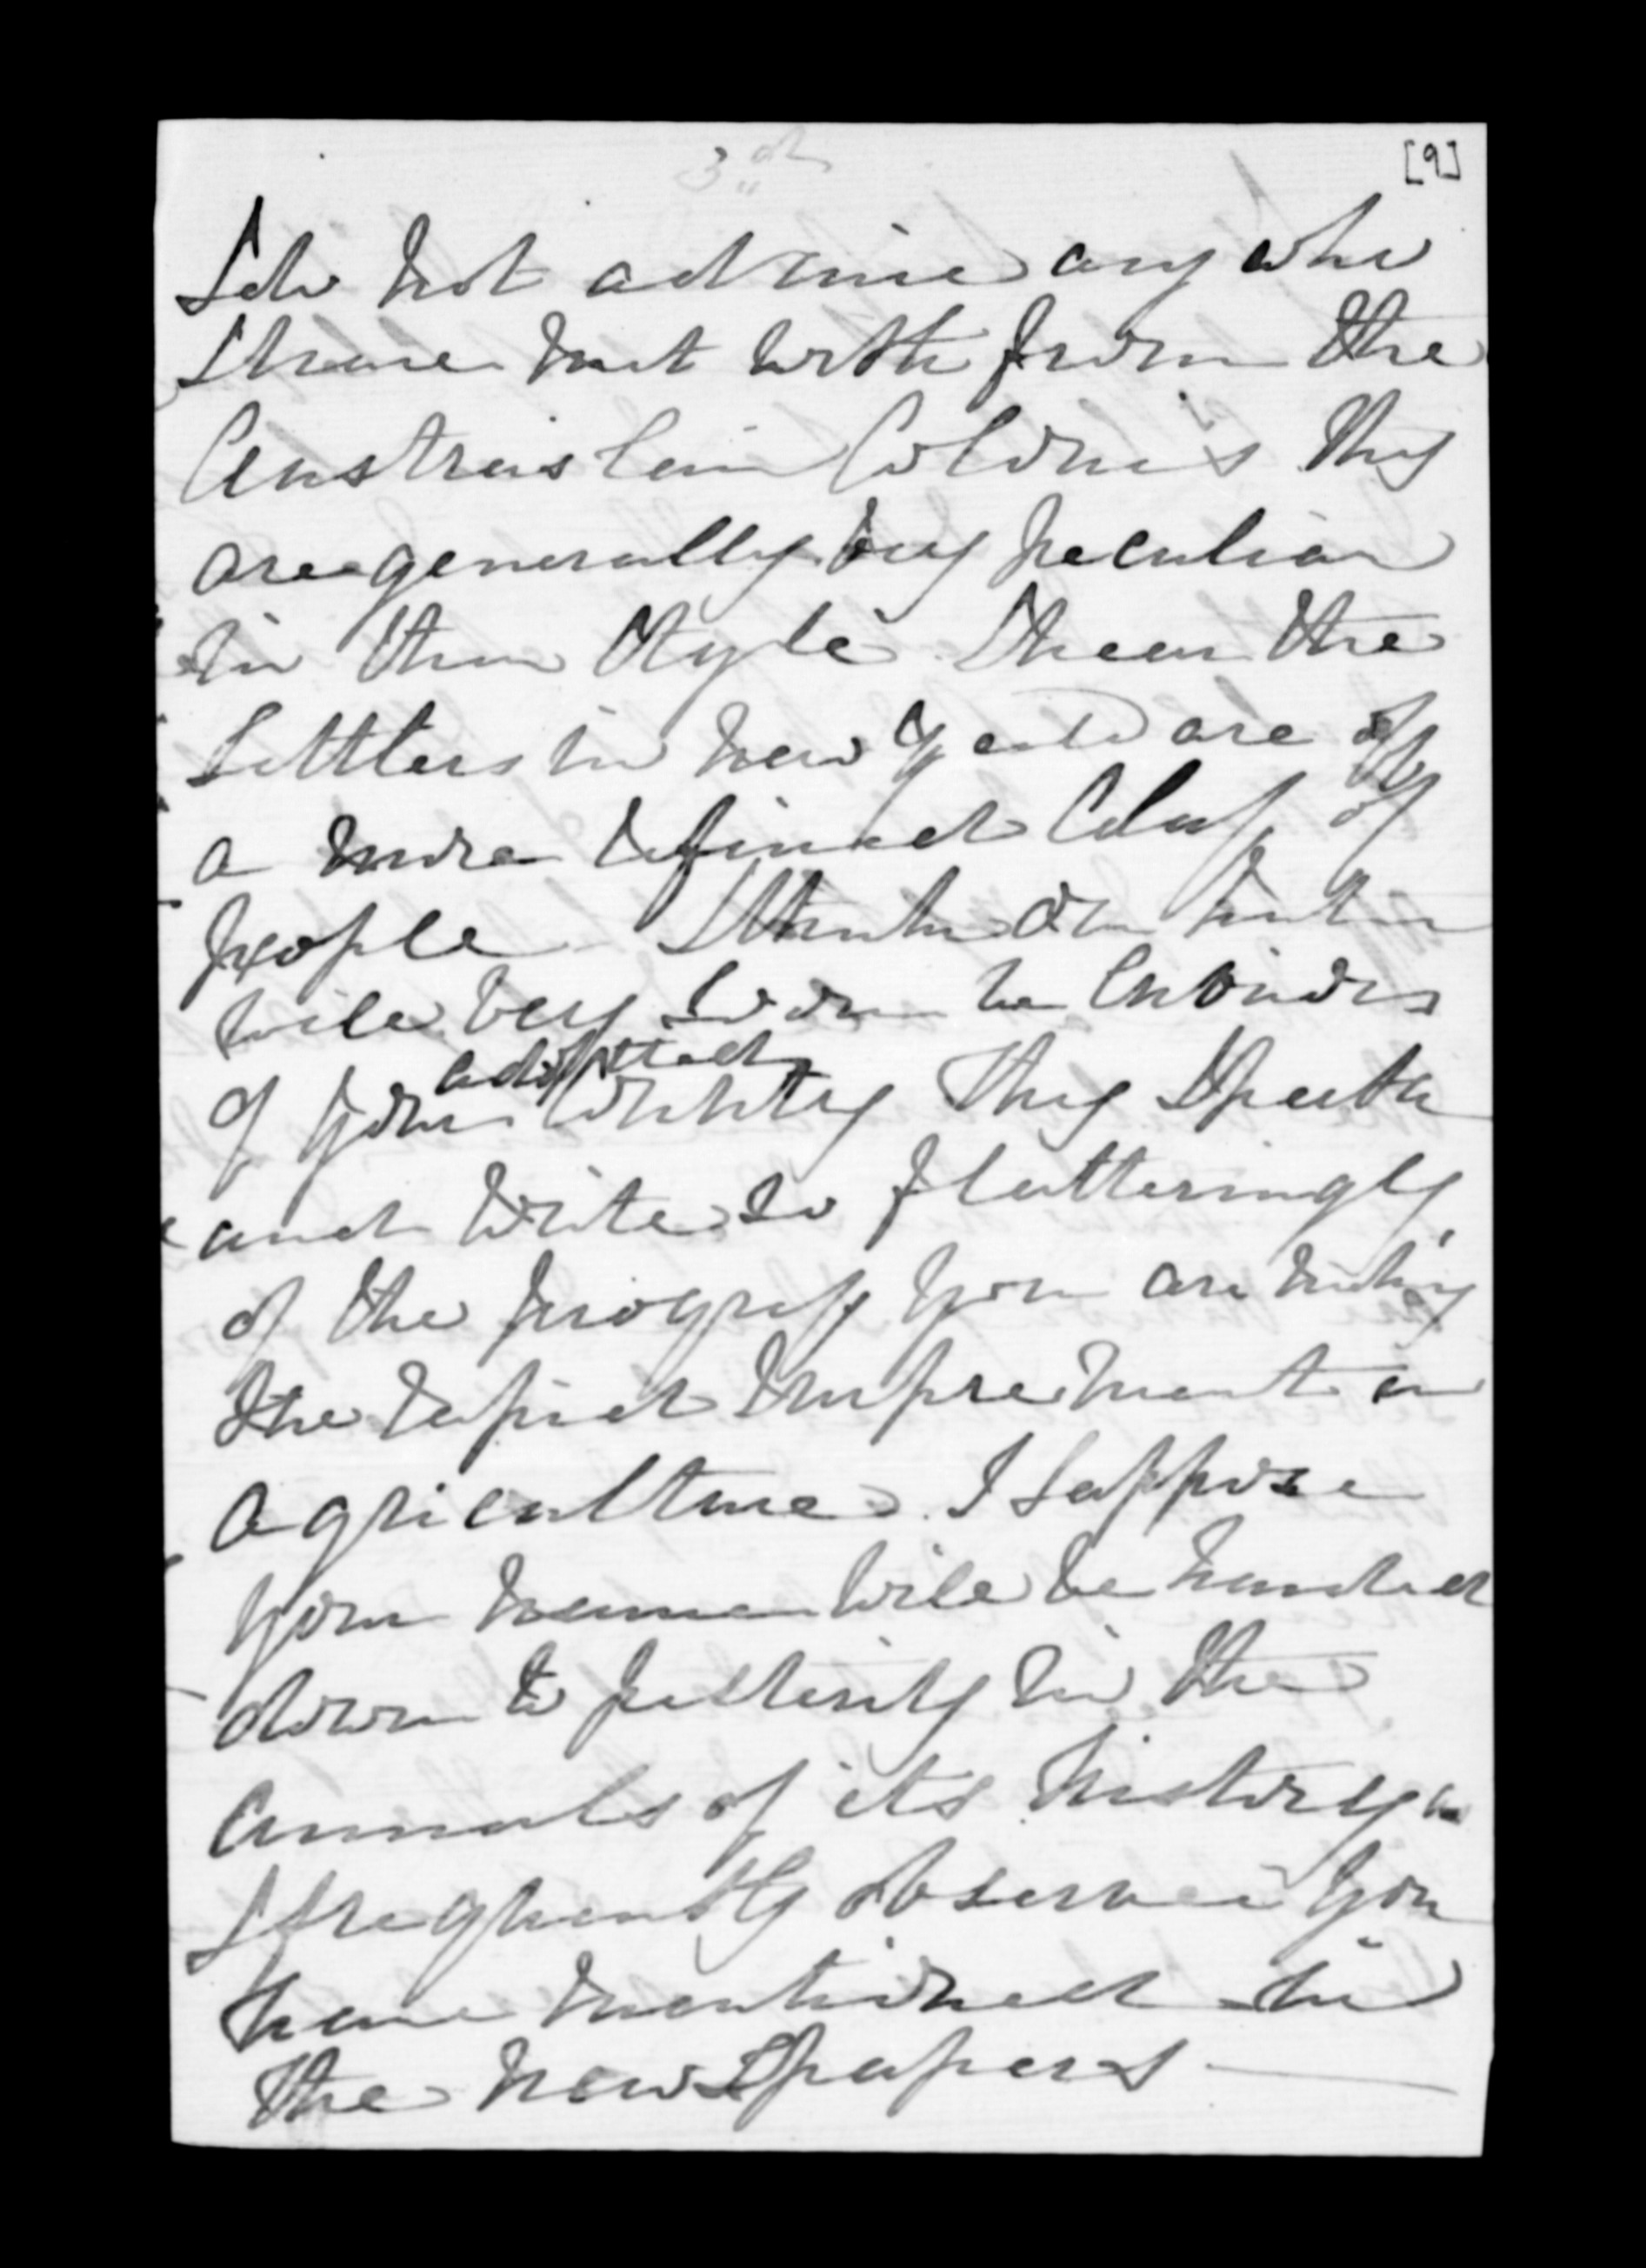 [9]
3rd
I do not admire any who
I have met with from the
Australian Colonies they
are generally very peculiar
in their style. I hear the
Settlers in New Zeald are of
a more refined Class of
people - I think our nation
will very soon be envious
of your adoptted Country they speak
and write so flatteringly
of the progress you are making
the rapid Improvement in
agriculture. I suppose
your name will be handed
down to posterity in the
annals of its history
I frequently observe you
name mentioned in
the newspapers —